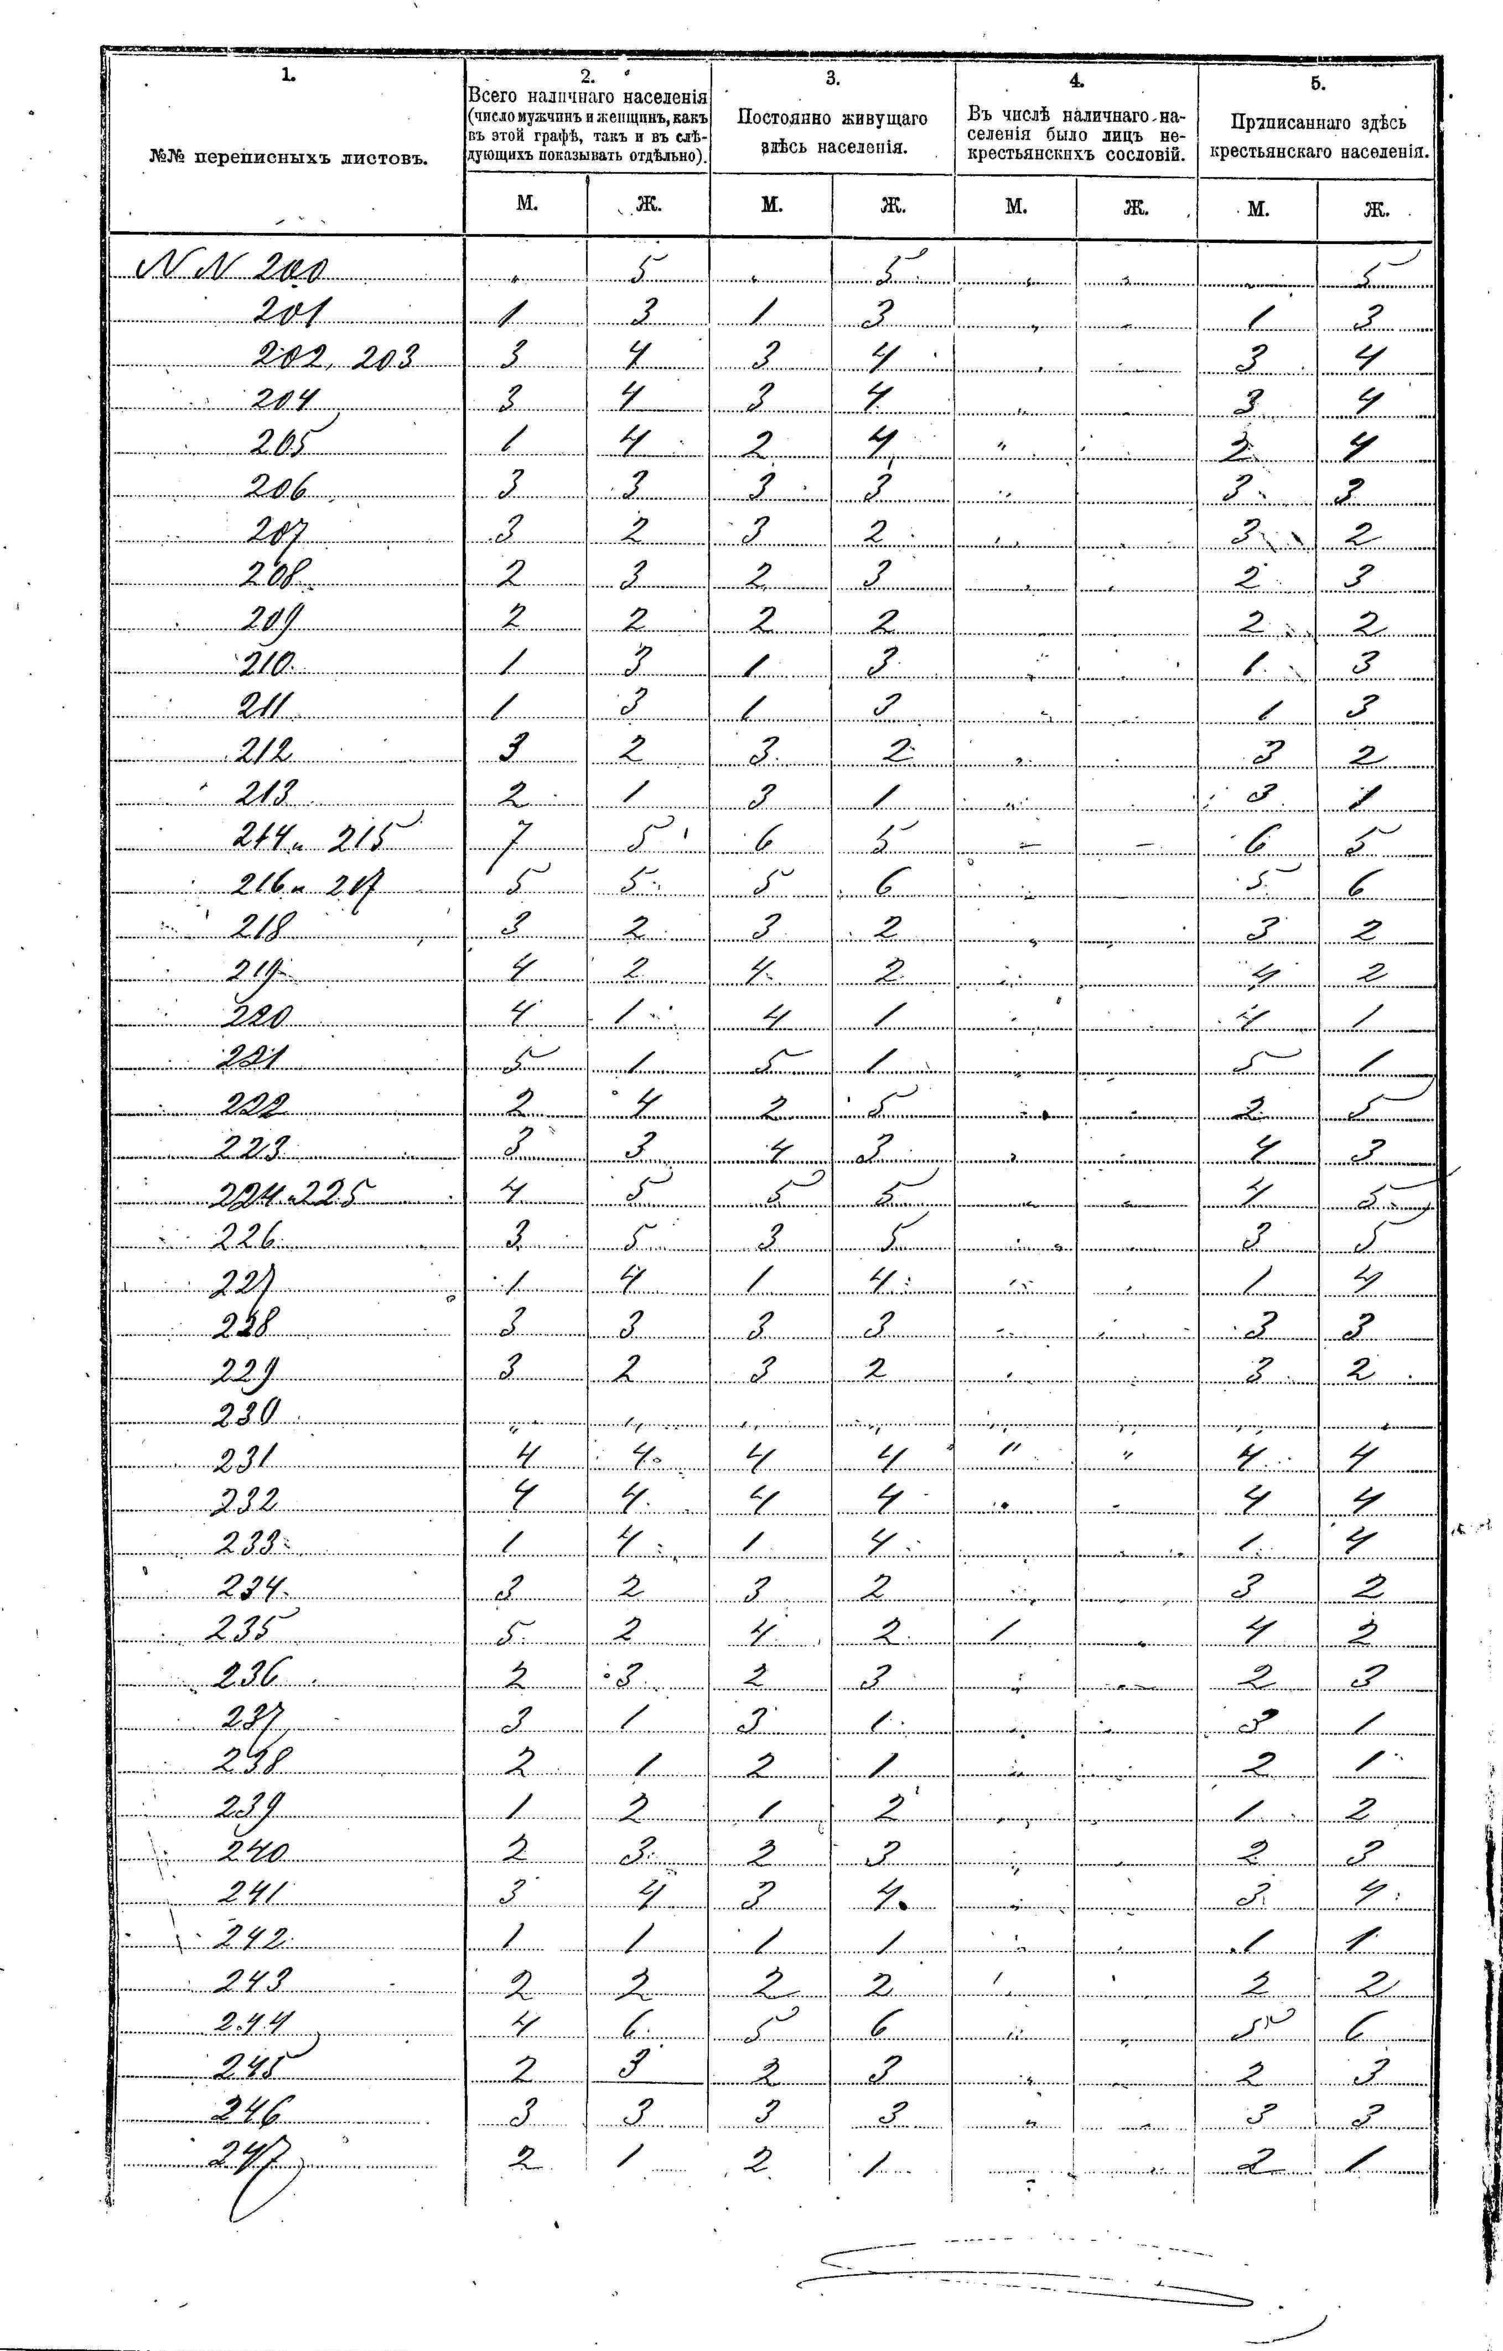 1. 2. 3. 4. 5.
№№ переписныхъ листовъ.
Всего наличнаго населенія (число мужчинъ и женщинъ, какъ въ этой графѣ, такъ и въ слѣ-дующихъ показывать отдѣльно).
Постоянно живущаго здѣсь населенія.
Въ числѣ наличнаго на-селенія было лицъ не-крестьянскихъ сословій.
Приписаннаго здѣсь крестьянскаго населенія.
М. Ж. М. Ж. М. Ж. М. Ж.
NN 200 " 5 " 5 " " " 5
201 1 3 1 3 " " 1 3
202, 203 3 4 3 4 " " 3 4
204 3 4 3 4 " " 3 4
205 1 4 2 4 " " 2 4
206 3 3 3 3 " " 3 3
207 3 2 3 2 " " 3 2
208 2 3 2 3 " " 2 3
209 2 2 2 2 " " 2 2
210 1 3 1 3 " " 1 3
211 1 3 1 3 " " 1 3
212 3 2 3 2 " " 3 2
213 2 1 3 1 " " 3 1
214 и 215 7 5 6 5 " " 6 5
216 и 217 5 5 5 6 " " 5 6
218 3 2 3 2 " " 3 2
219 4 2 4 2 " " 4 2
220 4 1 4 1 " " 4 1
221 5 1 5 1 " " 5 1
222 2 4 2 5 " " 2 5
223 3 3 4 3 " " 4 3
224 и 225 4 5 5 5 " " 4 5
226 3 5 3 5 " " 3 5
227 1 4 1 4 " " 1 4
228 3 3 3 3 " " 3 3
229 3 2 3 2 " " 3 2
230 " " " " " " " "
231 4 4 4 4 " " 4 4
232 4 4 4 4 " " 4 4
233 1 4 1 4 " " 1 4
234 3 2 3 2 " " 3 2
235 5 2 4 2 1 " 4 2
236 2 3 2 3 " " 2 3
237 3 1 3 1 " " 3 1
238 2 1 2 1 " " 2 1
239 1 2 1 2 " " 1 2
240 2 3 2 3 " " 2 3
241 3 4 3 4 " " 3 4
242 1 1 1 1 " " 1 1
243 2 2 2 2 " " 2 2
244 4 6 5 6 " " 5 6
245 2 3 2 3 " " 2 3
246 3 3 3 3 " " 3 3
247 2 1 2 1 " " 2 1